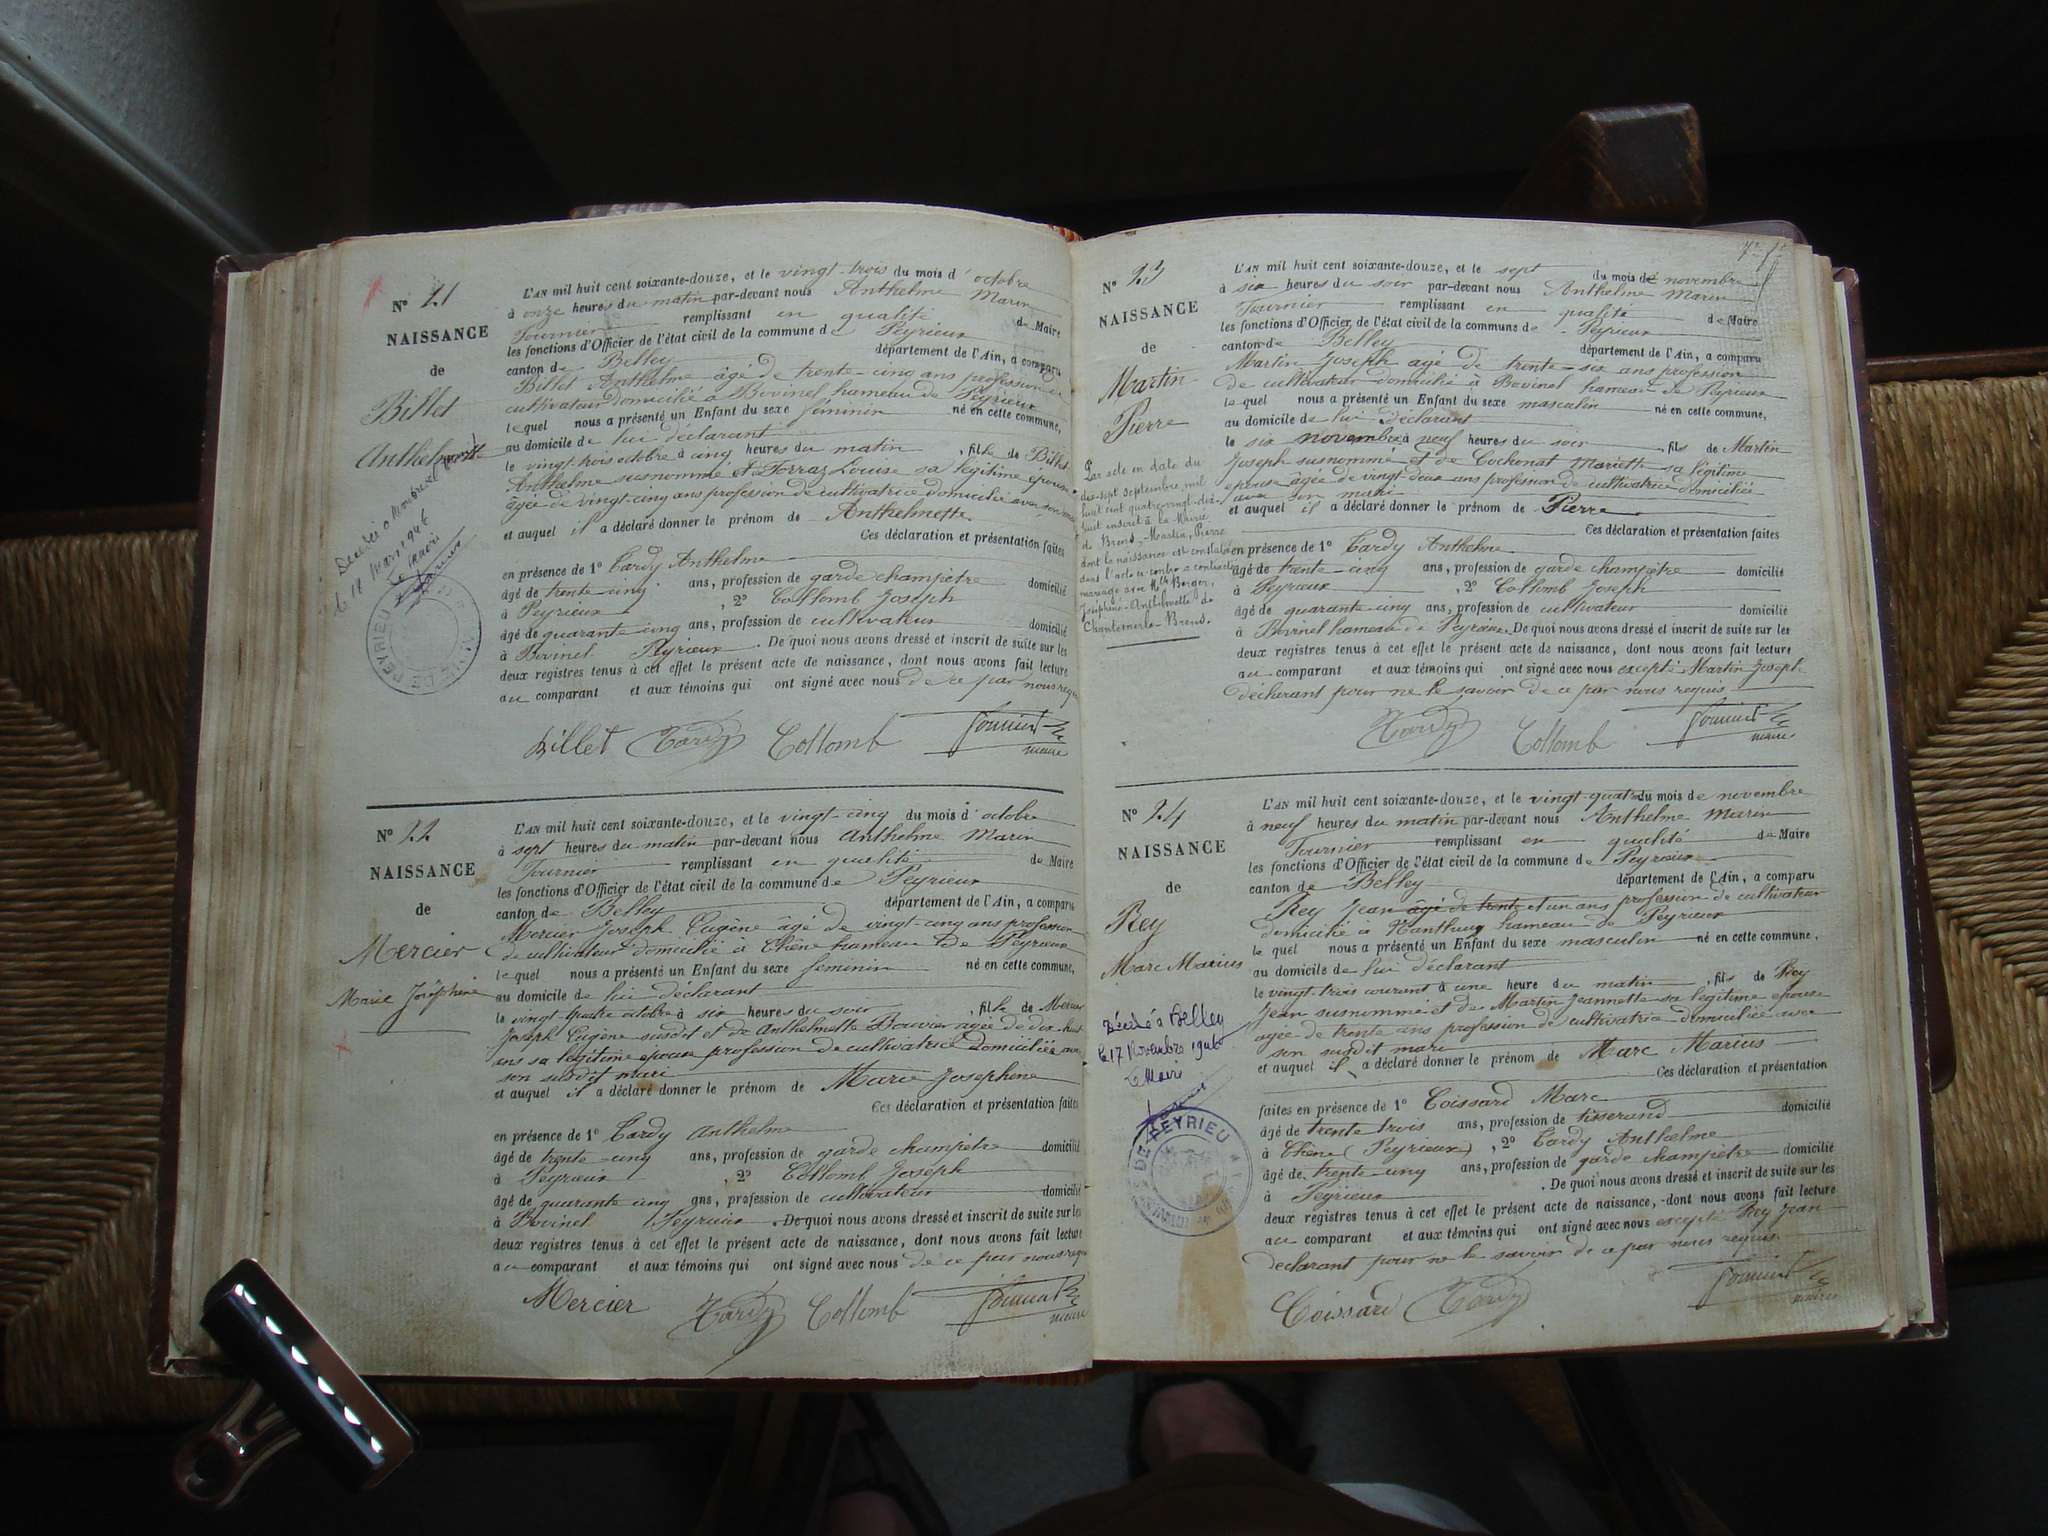 N° 21
NAISSANCE
de
Billet
Anthelmette
Décédée à
le 18 Mars 1946
Le Maire
MAIRIE DE PEYRIEU
L'AN mil huit cent soixante-douze, et le vingt-trois du mois d'octobre
à onze heures du matin par-devant nous Anthelme Marin
Fournier remplissant en qualité de Maire
les fonctions d'Officier de l'état civil de la commune de Peyrieux
canton de Belley département de l'Ain, a comparu
Billet Anthelme âgé de trente-cinq ans profession de
cultivateur domicilié à Bovinel hameau de Peyrieux
lequel nous a présenté un Enfant du sexe féminin né en cette commune,
au domicile de lui déclarant
le vingt-trois octobre à cinq heures du matin, fille de Billet
Anthelme susnommé et Ferraz Louise sa légitime épouse
âgée de vingt-cinq ans profession de cultivatrice domiciliée avec son mari
et auquel il a déclaré donner le prénom de Anthelmette
Ces déclaration et présentation faites
en présence de 1° Tardy Anthelme
âgé de trente-cinq ans, profession de garde champêtre domicilié
à Peyrieux, 2° Collomb Joseph
âgé de quarante cinq ans, profession de cultivateur domicilié
à Bovinel Peyrieux. De quoi nous avons dressé et inscrit de suite sur les
deux registres tenus à cet effet le présent acte de naissance, dont nous avons fait lecture
au comparant et aux témoins qui ont signé avec nous de ce par nous requis
Billet Tardy Collomb Fournier
maire
N° 22
NAISSANCE
de
Mercier
Marie Joséphine
L'AN mil huit cent soixante-douze, et le vingt-cinq du mois d'octobre
à sept heures du matin par-devant nous Anthelme Marin
Fournier remplissant en qualité de Maire
les fonctions d'Officier de l'état civil de la commune de Peyrieux
canton de Belley département de l'Ain, a comparu
Mercier Joseph Eugène âgé de vingt-cinq ans profession
de cultivateur domicilié à Chêne hameau de Peyrieux
lequel nous a présenté un Enfant du sexe feminin né en cette commune,
au domicile de lui déclarant
le vingt quatre octobre à six heures du soir, fille de Mercier
Joseph Eugène susdit et de Anthelmette Bouvier agée de dix-huit
ans sa légitime épouse profession de cultivatrice domiciliée avec
son susdit mari
et auquel il a déclaré donner le prénom de Marie Josephine
Ces déclaration et présentation faites
en présence de 1° Tardy Anthelme
âgé de trente-cinq ans, profession de garde champêtre domicilié
à Peyrieux, 2° Collomb Joseph
âgé de quarante cinq ans, profession de cultivateur domicilié
à Bovinel Peyrieux. De quoi nous avons dressé et inscrit de suite sur les
deux registres tenus à cet effet le présent acte de naissance, dont nous avons fait lecture
au comparant et aux témoins qui ont signé avec nous de ce par nous requis
Mercier Tardy Collomb Fournier
maire
N° 23
NAISSANCE
de
Martin
Pierre
Par acte en date du
dix-sept septembre mil
huit cent quatre-vingt-dix-
huit inscrit à la Mairie
de Brend, Martin, Pierre
dont la naissance est constatée
dans l'acte ci-contre a contracté
mariage avec Mlle Berger,
Joséphine-Anthelmette de
Chantemerle-Brend.
L'AN mil huit cent soixante-douze, et le sept du mois de novembre
à six heures du soir par-devant nous Anthelme Marin
Fournier remplissant en qualité de Maire
les fonctions d'Officier de l'état civil de la commune de Peyrieux
canton de Belley département de l'Ain, a comparu
Martin Joseph agé de trente-six ans profession
de cultivateur domicilié à Bovinel hameau de Peyrieux
lequel nous a présenté un Enfant du sexe masculin né en cette commune,
au domicile de lui déclarant
le six novembre à neuf heures du soir, fils de Martin
Joseph susnommé et de Cochonat Mariette sa légitime
epouse âgée de vingt-deux ans profession de cultivatrice domiciliée
avec son mari
et auquel il a déclaré donner le prénom de Pierre
Ces déclaration et présentation faites
en présence de 1° Tardy Anthelme
âgé de trente-cinq ans, profession de garde champêtre domicilié
à Peyrieux, 2° Collomb Joseph
âgé de quarante-cinq ans, profession de cultivateur domicilié
à Bovinel hameau de Peyrieux. De quoi nous avons dressé et inscrit de suite sur les
deux registres tenus à cet effet le présent acte de naissance, dont nous avons fait lecture
au comparant et aux témoins qui ont signé avec nous excepté Martin Joseph
déclarant pour ne le savoir de ce par nous requis
Tardy Collomb Fournier
maire
N° 24
NAISSANCE
de
Rey
Marc Marius
Décédé à Belley
le 17 Novembre 1946
Le Maire
MAIRIE DE PEYRIEU
L'AN mil huit cent soixante-douze, et le vingt-quatre du mois de novembre
à neuf heures du matin par-devant nous Anthelme Marin
Fournier remplissant en qualité de Maire
les fonctions d'Officier de l'état civil de la commune de Peyrieux
canton de Belley département de l'Ain, a comparu
Rey Jean âgé de trente et un ans profession de cultivateur
domicilié à hameau de Peyrieux
lequel nous a présenté un Enfant du sexe masculin né en cette commune,
au domicile de lui déclarant
le vingt-trois courant à une heure du matin, fils de Rey
Jean susnommé et de Martin Jeannette sa légitime epouse
agée de trente ans profession de cultivatrice domiciliée avec
son susdit mari
et auquel il a déclaré donner le prénom de Marc Marius
Ces déclaration et présentation
faites en présence de 1° Coissard Marc
âgé de trente trois ans, profession de tisserand domicilié
à Chêne (Peyrieux), 2° Tardy Anthelme
âgé de trente cinq ans, profession de garde champêtre domicilié
à Peyrieux. De quoi nous avons dressé et inscrit de suite sur les
deux registres tenus à cet effet le présent acte de naissance, dont nous avons fait lecture
au comparant et aux témoins qui ont signé avec nous excepté Rey Jean
declarant pour ne le savoir de ce par nous requis.
Coissard Tardy Fournier
maire